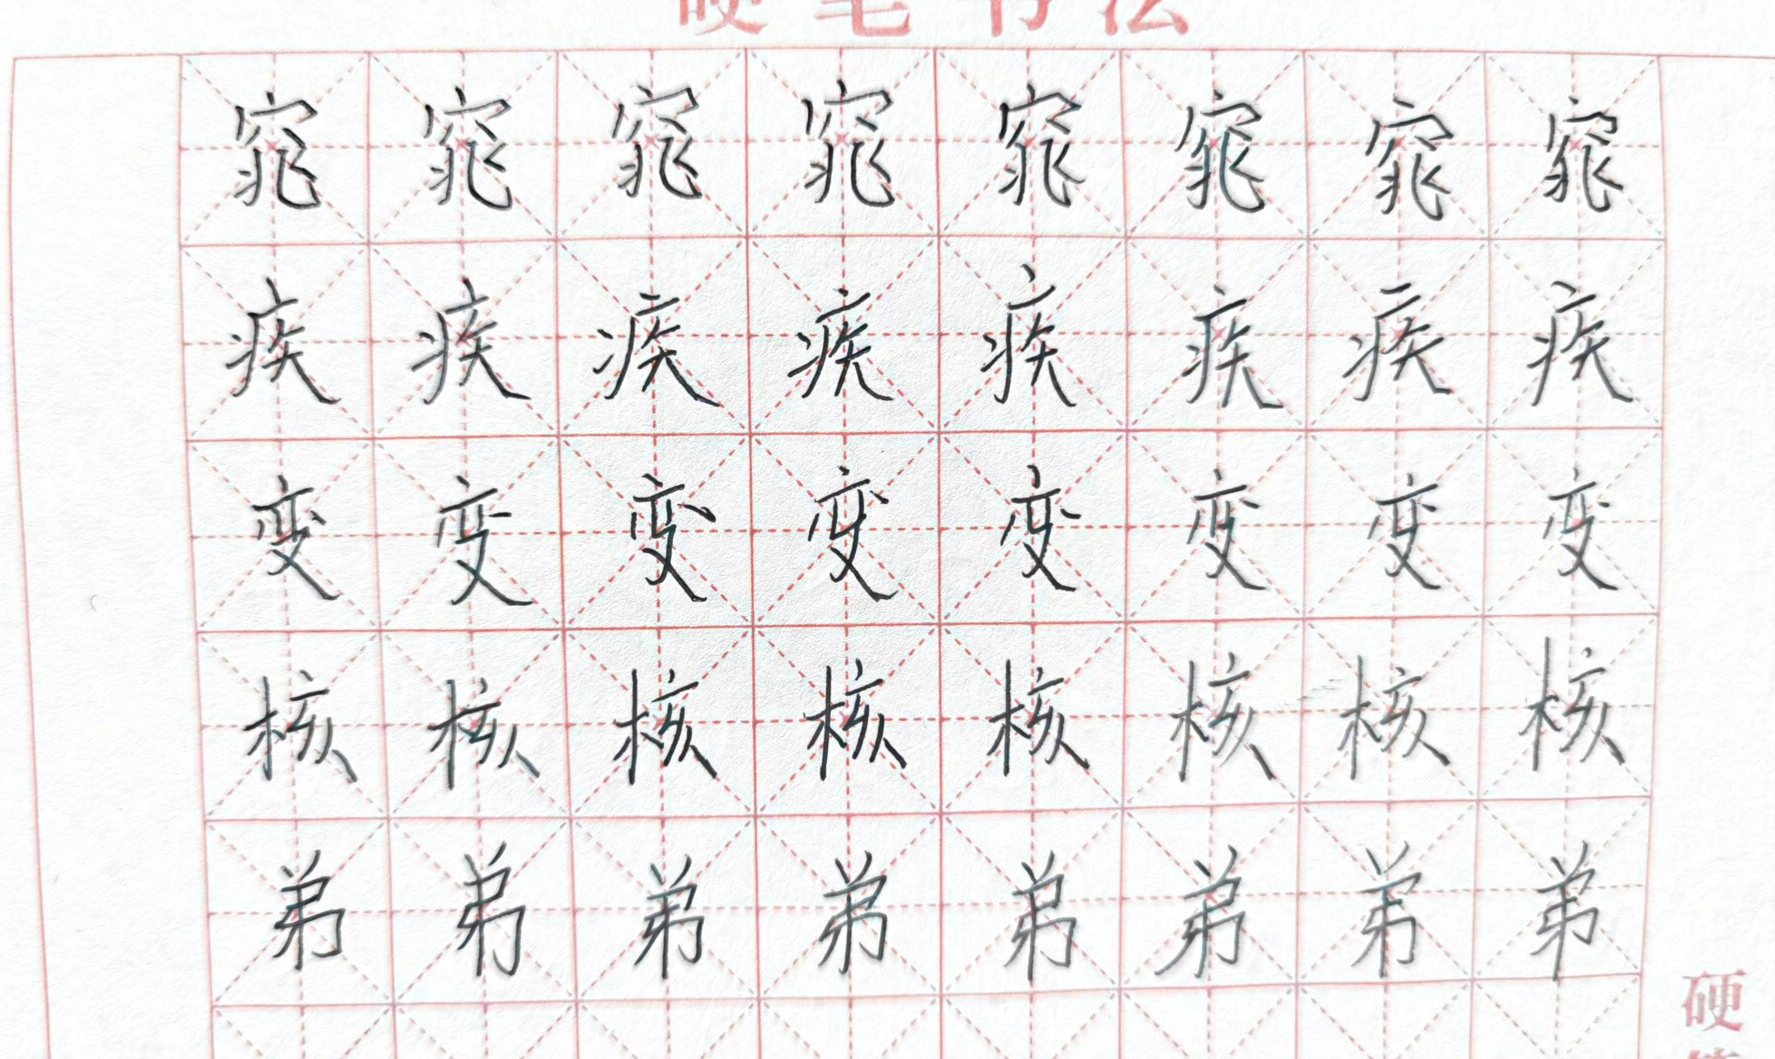 硬笔书法
窕窕窕窕窕窕窕窕
疾疾疾疾疾疾疾疾
变变变变变变变变
核核核核核核核核
弟弟弟弟弟弟弟弟
硬